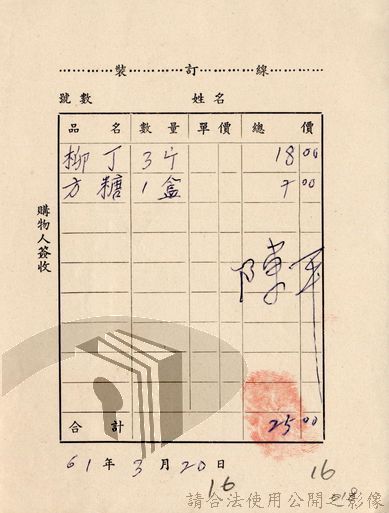 …………裝…………訂…………線…………
號數 姓名
品名 數量 單價 總價
柳丁 3斤 18 00
方糖 1盒 7 00
購物人簽收
陳平
合計 25 00
61年3月20日
16 16
018
請合法使用公開之影像